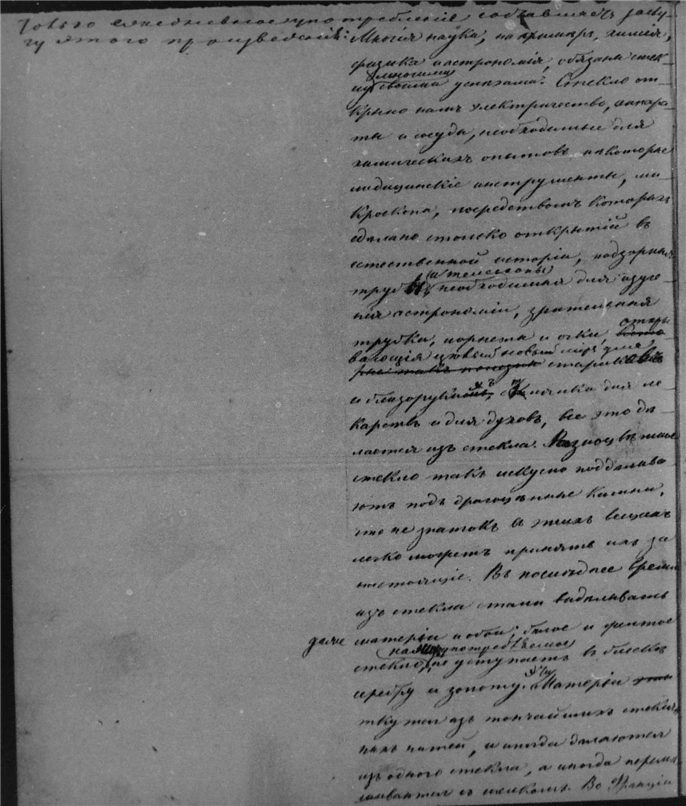 только ежедневное употребление составляетъ заслу-
гу этого произведенія:
Многія науки, на примѣръ, химія,
физика и астрономія, обязаны стек-
лу
многими
своими успѣхами. Стекло от-
крыло намъ электричество, аппара-
ты и сосуды, необходимые для
химическихъ опытовъ, нѣкоторые
медицинскіе инструменты, ми-
кроскопы, посредствомъ которыхъ
сдѣлано столько открытій въ
естественной исторіи, подзорныя
и телескопы
трубы, необходимыя для изуче-
нія астрономіи, зрительныя
трубки, лорнеты и очки,
откры-
вающія цѣлый новый міръ для
стариковъ
и близорукихъ, стклянки для ле-
карствъ и для духовъ, все это дѣ-
лается изъ стекла. Разноцвѣтное
стекло такъ искусно поддѣлыва-
ютъ подъ драгоцѣнные камни,
что не знатокъ въ этихъ вещахъ
легко можетъ принять ихъ за
настоящіе. Въ послѣднее время
изъ стекла стали выдѣлывать
даже матеріи и обои; бѣлое и желтое
употребляемое
стекло не уступаетъ въ блескѣ
серебру и золоту. Эти матеріи
ткутся изъ тончайшихъ стеклян-
ныхъ нитей, и иногда дѣлаются
изъ одного стекла, а иногда перемѣ-
шиваются съ шелкомъ. Во Франціи